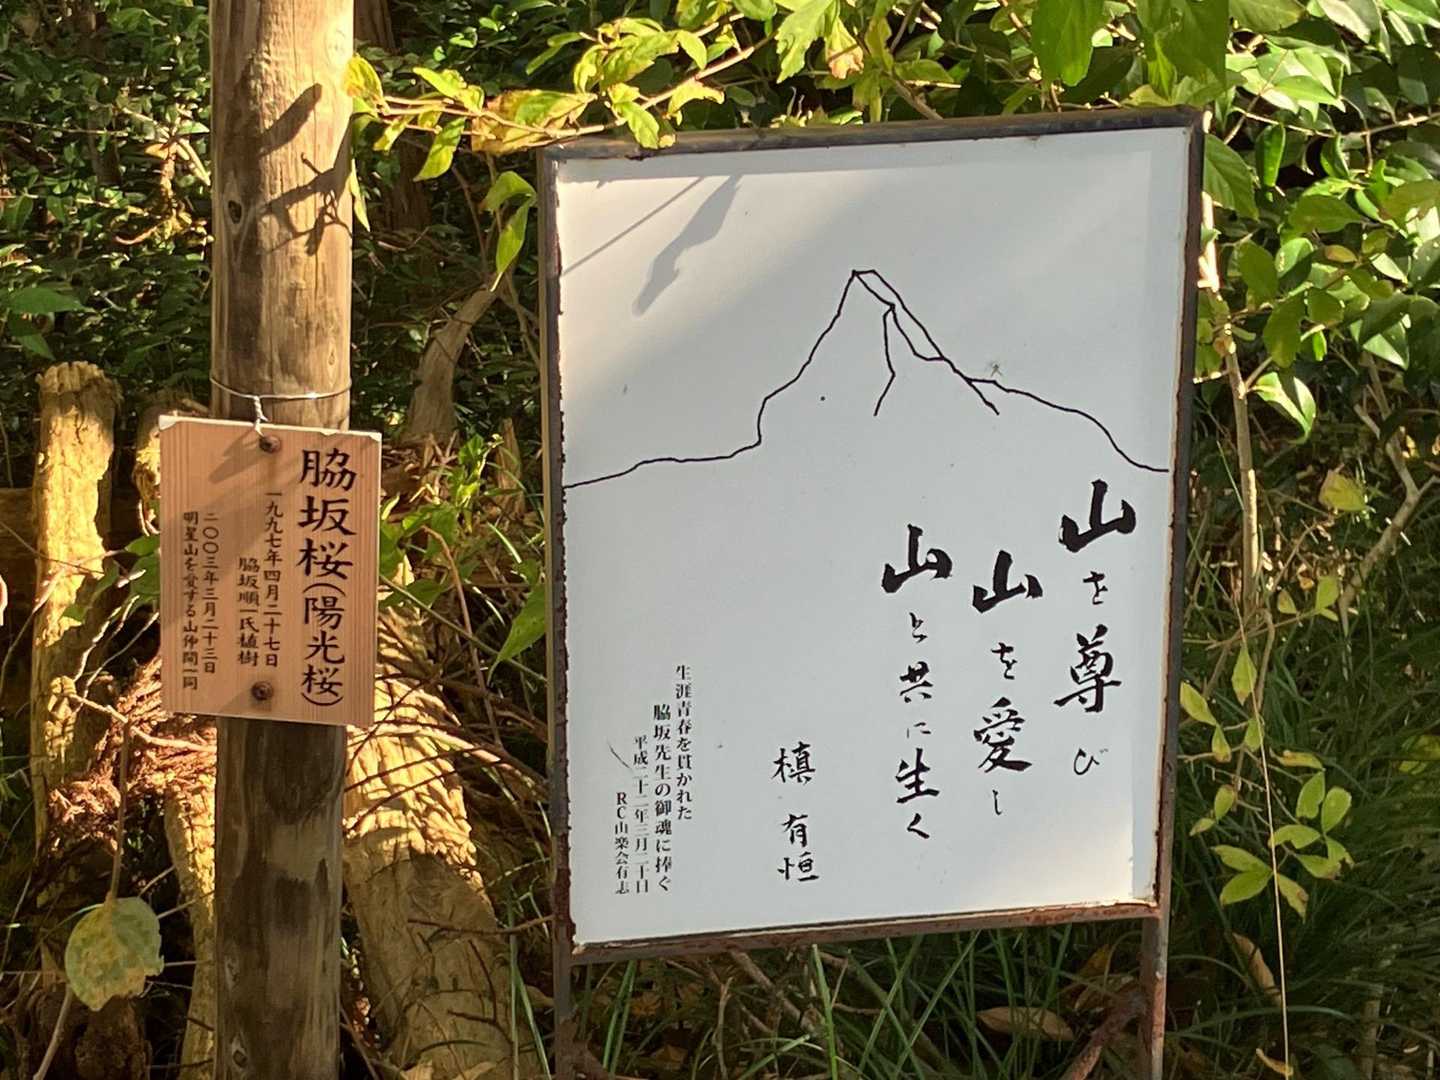 脇坂桜(陽光桜)
一九九七年四月二十七日
脇坂順一氏植樹
二〇〇三年三月二十三日
明星山を愛する山仲間一同
山を尊び
山を愛し
山と共に生く
槙有恒
生涯青春を貫かれた
脇坂先生の御魂に捧ぐ
平成二十二年三月二十日
RC山楽会有志